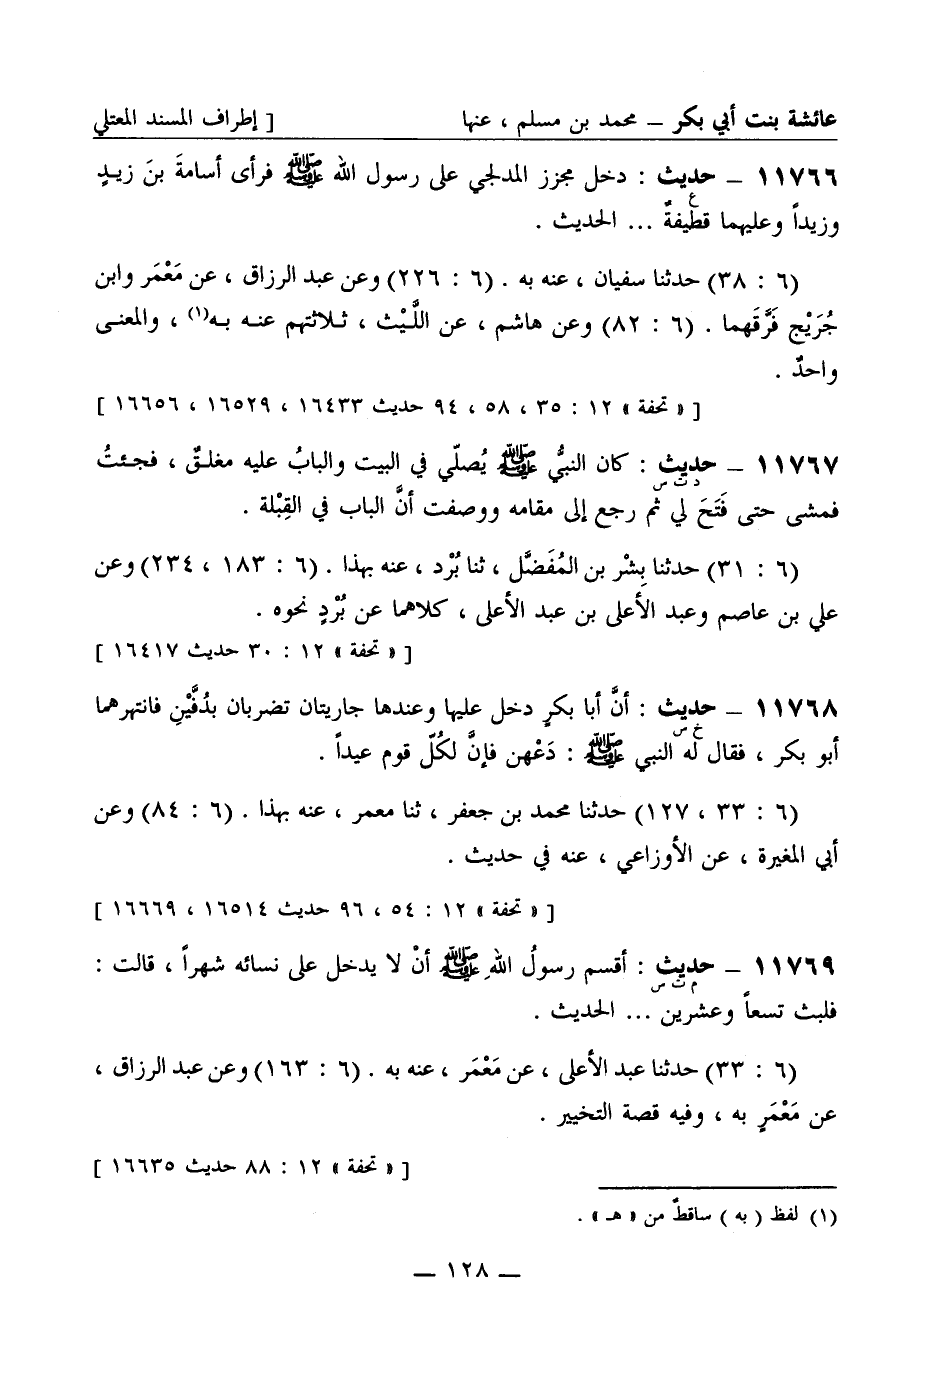 عائشة بنت أبي بكر – محمد بن مسلم ، عنها [ إطراف المسند المعتلي
١١٧٦٦ – حديث : دخل مجزز المدلجي على رسول الله ﷺ فرأى أسامةَ بنَ زيدٍ
ع
وزيداً وعليهما قطيفةٌ ... الحديث .
(٦ : ٣٨) حدثنا سفيان ، عنه به . (٦ : ٢٢٦) وعن عبد الرزاق ، عن مَعْمَر وابن
جُرَيْج فَرَّقَهما . (٦ : ٨٢) وعن هاشم ، عن اللَّيْث ، ثلاثتهم عنه به(١) ، والمعنى
واحدٌ .
[ « تحفة » ١٢ : ٣٥ ، ٥٨ ، ٩٤ حديث ١٦٤٣٣ ، ١٦٥٢٩ ، ١٦٦٥٦ ]
١١٧٦٧ – حديث : كان النبيُّ ﷺ يُصلّي في البيت والبابُ عليه مغلقٌ ، فجئتُ
د ت س
فمشى حتى فَتَحَ لي ثم رجع إلى مقامه ووصفت أنَّ الباب في القِبْلة .
(٦ : ٣١) حدثنا بِشْر بن المُفَضَّل ، ثنا بُرْد ، عنه بهذا . (٦ : ١٨٣ ، ٢٣٤) وعن
علي بن عاصم وعبد الأعلى بن عبد الأعلى ، كلاهما عن بُرْدٍ نحوه .
[ « تحفة » ١٢ : ٣٠ حديث ١٦٤١٧ ]
١١٧٦٨ – حديث : أنَّ أبا بكرٍ دخل عليها وعندها جاريتان تضربان بدُفَّيْنِ فانتهرهما
خ س
أبو بكر ، فقال له النبي ﷺ : دَعْهن فإنَّ لكُلّ قوم عيداً .
(٦ : ٣٣ ، ١٢٧) حدثنا محمد بن جعفر ، ثنا معمر ، عنه بهذا . (٦ : ٨٤) وعن
أبي المغيرة ، عن الأوزاعي ، عنه في حديث .
[ « تحفة » ١٢ : ٥٤ ، ٩٦ حديث ١٦٥١٤ ، ١٦٦٦٩ ]
١١٧٦٩ – حديث : أقسم رسولُ اللهِ ﷺ أنْ لا يدخل على نسائه شهراً ، قالت :
م ت س
فلبث تسعاً وعشرين ... الحديث .
(٦ : ٣٣) حدثنا عبد الأعلى ، عن مَعْمَر ، عنه به . (٦ : ١٦٣) وعن عبد الرزاق ،
عن مَعْمَرٍ به ، وفيه قصة التخيير .
[ « تحفة » ١٢ : ٨٨ حديث ١٦٦٣٥ ]
(١) لفظ ( به ) ساقطٌ من « هـ » .
– ١٢٨ –